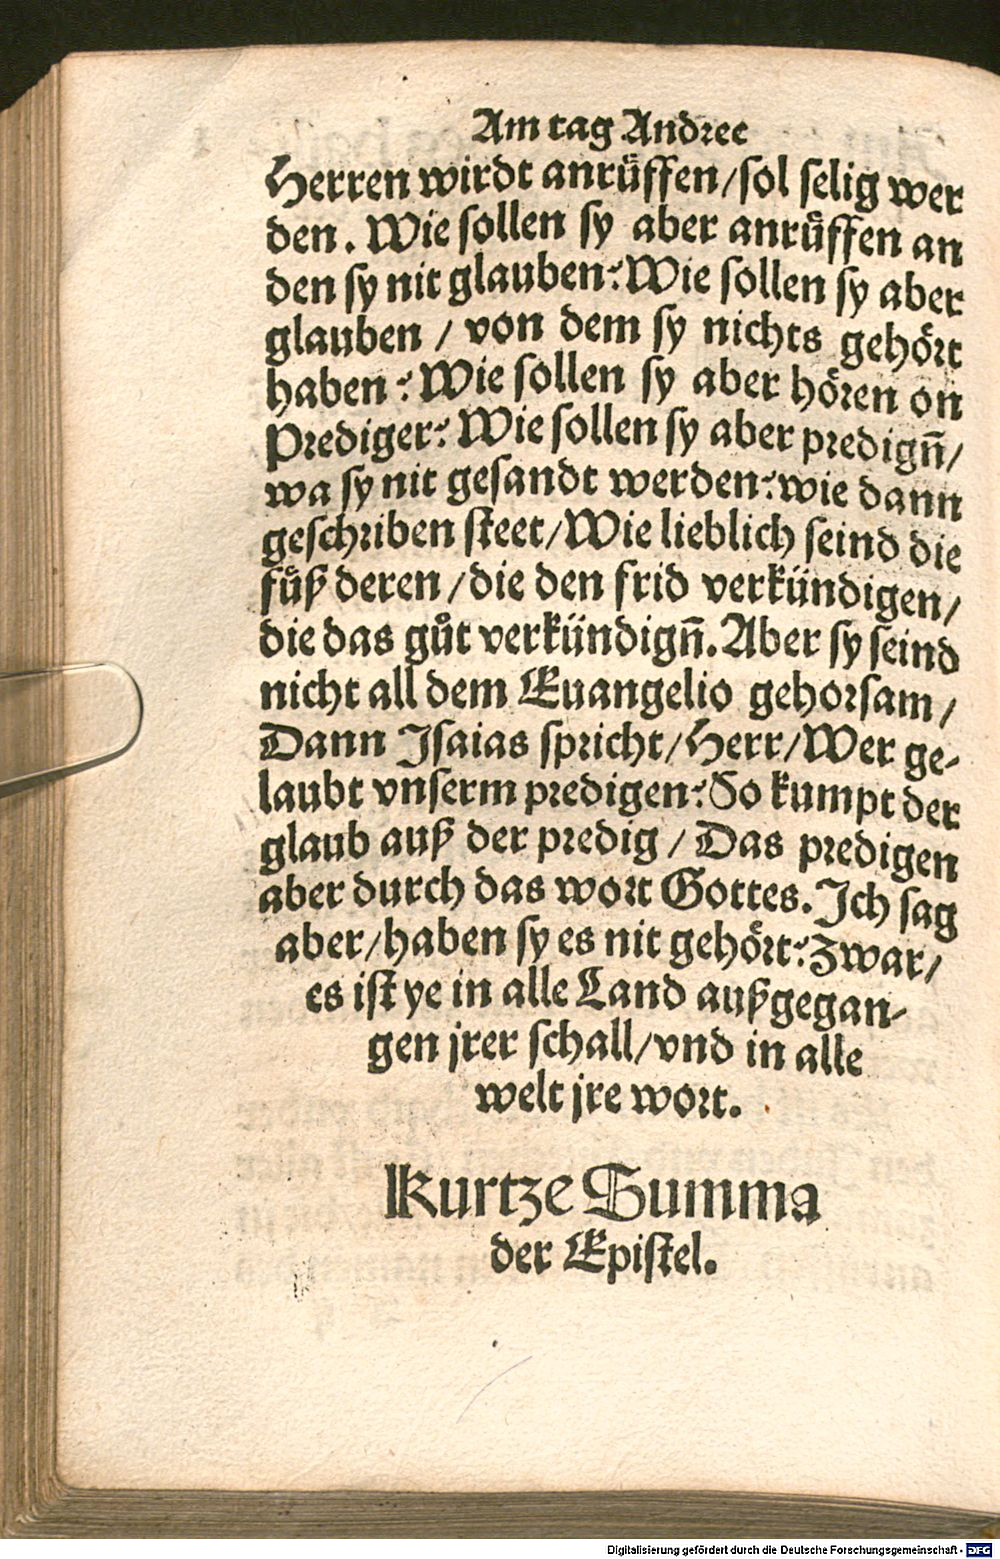 Am tag Andree
Herren wirdt anrüffen/sol selig wer
den. Wie sollen sy aber anrüffen an
den sy nit glauben? Wie sollen sy aber
glauben / von dem sy nichts gehört
haben? Wie sollen sy aber hören on
Prediger? Wie sollen sy aber predign̄/
wa sy nit gesandt werden? wie dann
geschriben steet/Wie lieblich seind die
fuͤß deren/die den frid verkündigen/
die das guͦt verkündign̄. Aber sy seind
nicht all dem Euangelio gehorsam/
Dann Isaias spricht/Herr/Wer ge-
laubt vnserm predigen? So kumpt der
glaub auß der predig / Das predigen
aber durch das wort Gottes. Ich sag
aber/haben sy es nit gehört? Zwar/
es ist ye in alle Land außgegan-
gen jrer schall/vnd in alle
welt jre wort.
Kurtze Summa
der Epistel.
Digitalisierung gefördert durch die Deutsche Forschungsgemeinschaft - DFG